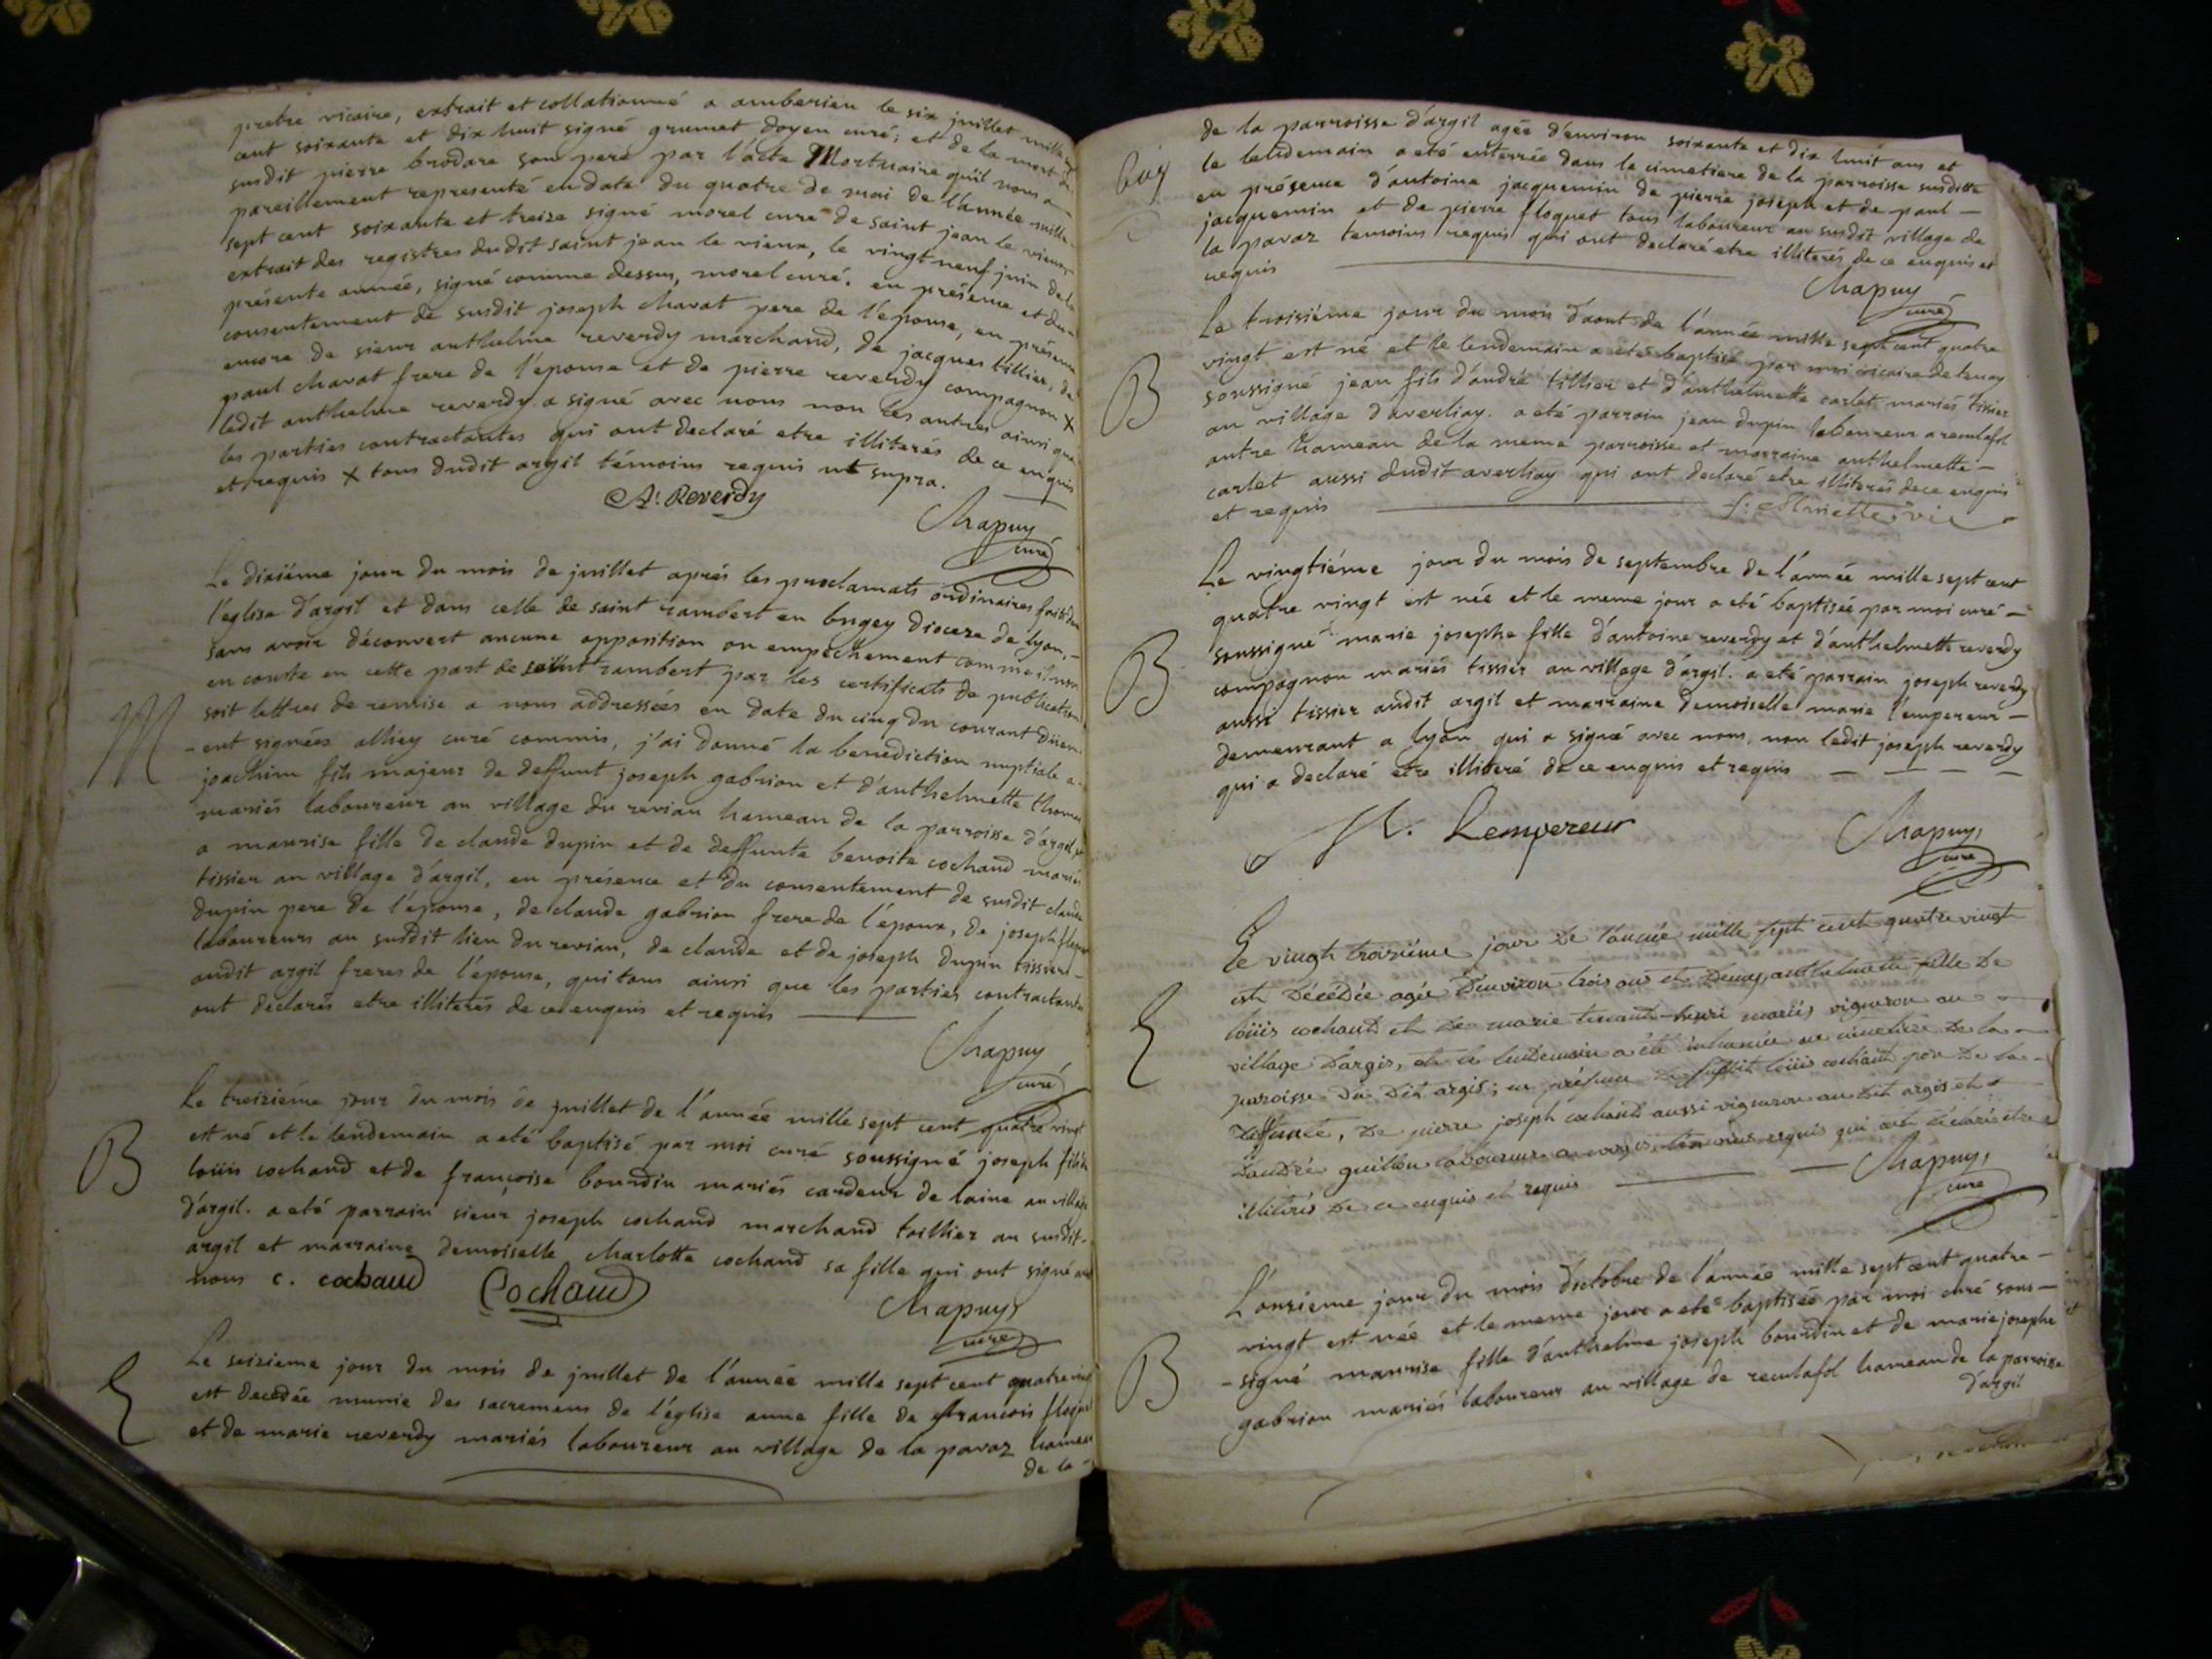 pretre vicaire, extrait et collationné a amberieu le six juillet mille
cent soixante et dix huit signé grumet doyen curé; et de la mort du
susdit pierre brodare son pere par l'acte Mortuaire qu'il nous a
pareillement representé en date du quatre de mai de l'année mille
sept cent soixante et treize signé morel curé de saint jean le vieux,
extrait des registres dudit saint jean le vieux, le vingt neuf juin de la
présente année, signé comme dessus, morel curé. en présence et du
consentement de susdit joseph charat pere de l'epouse, en présence
encore de sieur anthelme reverdy marchand, de jacques tillier, de
paul charat frere de l'epouse et de pierre reverdy compagnon X
ledit anthelme reverdy a signé avec nous non les autres ainsi que
les parties contractantes qui ont declaré etre illiterés de ce enquis
et requis X tous dudit argil témoins requis ut supra.
A. Reverdy
Chapuy
curé
Le dixiéme jour du mois de juillet aprés les proclamats ordinaires faits dans
l'eglise d'argil et dans celle de saint rambert en bugey diocese de lyon,
sans avoir découvert aucune opposition ou empechement comme il nous
en conste en cette part de saint rambert par les certificats de publication
soit lettres de remise a nous addressées en date du cinq du courant düem-
M
-ent signées alliey curé commis, j'ai donné la benediction nuptiale a
joachim fils majeur de deffunt joseph gabrion et d'anthelmette
mariés laboureur au village du revian hameau de la parroisse d'argil
a maurise fille de claude dupin et de deffunte benoite cochand mariés
tissier au village d'argil, en présence et du consentement de susdit claude
dupin pere de l'epouse, de claude gabrion frere de l'époux, de joseph
laboureurs au susdit lieu du revian, de claude et de joseph dupin tissiers
audit argil freres de l'épouse, qui tous ainsi que les parties contractantes
ont declarés etre illiterés de ce enquis et requis
Chapuy
curé
Le treiziéme jour du mois de juillet de l'année mille sept cent quatre vingt
est né et le lendemain a eté baptisé par moi curé soussigné joseph fils de
B
loüis cochand et de françoise bourdin mariés cardeur de laine au village
d'argil. a eté parrain sieur joseph cochand marchand toillier au susdit
argil et marraine demoiselle charlotte cochand sa fille qui ont signé avec
nous c. cochaud Cochaud
Chapuy
curé
Le seizieme jour du mois de juillet de l'année mille sept cent quatre vingt
est decedée munie des sacremens de l'église anne fille de francois floquet
et de marie reverdy mariés laboureur au village de la pavaz hameau
de la
de la parroisse d'argil agée d'environ soixante et dix huit ans et
le lendemain a eté enterrée dans le cimetiere de la parroisse susditte
en présence d'antoine jacquemin de pierre joseph et de paul
jacquemin et de pierre floquet tous laboureur au susdit village de
la pavaz temoins requis qui ont declaré etre illiterés de ce enquis et
requis
Chapuy
curé
Le troisiéme jour du mois d'aout de l'année mille sept cent quatre
vingt est né et le lendemain a eté baptisé par moi vicaire de tenay
B
soussigné jean fils d'andré tillier et d'anthelmette carlet mariés tissier
au village d'averliay. a eté parrain jean dupin laboureur a reculafol
autre hameau de la meme parroisse et marraine anthelmette
carlet aussi dudit averliay qui ont declaré etre illiterés de ce enquis
et requis
Le vingtiéme jour du mois de septembre de l'année mille sept cent
quatre vingt est née et le meme jour a eté baptisée par moi curé
B
soussigné marie josephe fille d'antoine reverdy et d'anthelmette reverdy
compagnon mariés tissier au village d'argil. a eté parrain joseph reverdy
aussi tissier audit argil et marraine demoiselle marie l'empereur
demeurant a lyon qui a signé avec nous, non ledit joseph reverdy
qui a declaré etre illiteré de ce enquis et requis
M. Lempereur
Chapuy
curé
Le vingt troisiéme jour de l'année mille sept cent quatre vingt
est décédée agée d'environ trois ans et demy anthelmette fille de
loüis cochand et de marie mariés vigneron au
village d'argis, et le lendemain a été inhumée au cimetiere de la
paroisse du dit argis; en présence de susdit loüis cochand pere de la
deffuncte, de pierre joseph cochand aussi vigneron au dit argis et
d'andré guillon laboureur requis qui ont déclaré etre
illiterés de ce enquis et requis
Chapuy
curé
L'onzieme jour du mois d'octobre de l'année mille sept cent quatre
vingt est née et le meme jour a eté baptisée par moi curé sous-
B
-signé maurise fille d'anthelme joseph bourdin et de marie josephe
gabrion mariés laboureur au village de reculafol hameau de la parroisse
d'argil